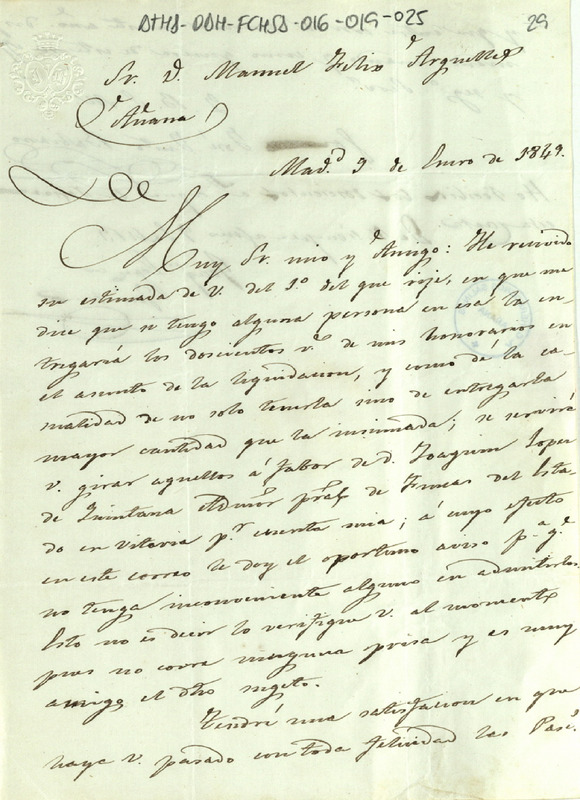 ATHA-DDH-FCHSA-016-019-025
29
Sr. D. Manuel Felix de Arguelles
de Añana
Madd. 9 de Enero de 1849.
Muy Sr. mio y de Amigo: He recivido
su estimada de V. del 1º del que rije, en que me
dice que si tengo alguna persona en esa la en-
tregaria los doscientos rs. de mis honorarios en
el asunto de la liquidacion, y como dé la ca-
sualidad de no solo tenerla sino de entregarla
mayor cantidad que la insinuada; se servirá
V. girar aquellos á fabor de D. Joaquin Lopez
de Quintana Admor. pral. de Fincas del Esta-
do en Vitoria pr. cuenta mia; á cuyo efecto
en este correo le doy el oportuno aviso pa. qe.
no tenga inconveniente alguno en admitirlos.
Esto no es decir lo verifique V. al momento
pues no corre ninguna prisa y es muy
amigo el dho sugeto.
Tendré una satisfaccion en que
haya V. pasado con toda felicidad las Pasc.